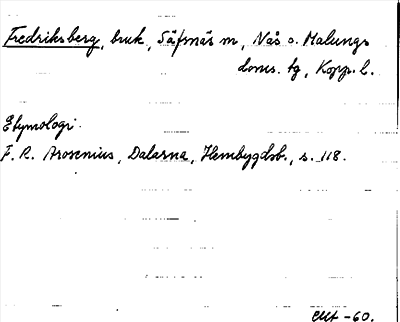 Fredriksberg, bruk, Säfsnäs sn, Nås o. Malungs
doms. tg, Kopp. l.
Etymologi.
F. R. Arosenius, Dalarna, Hembygdsb., s. 118.
-60.